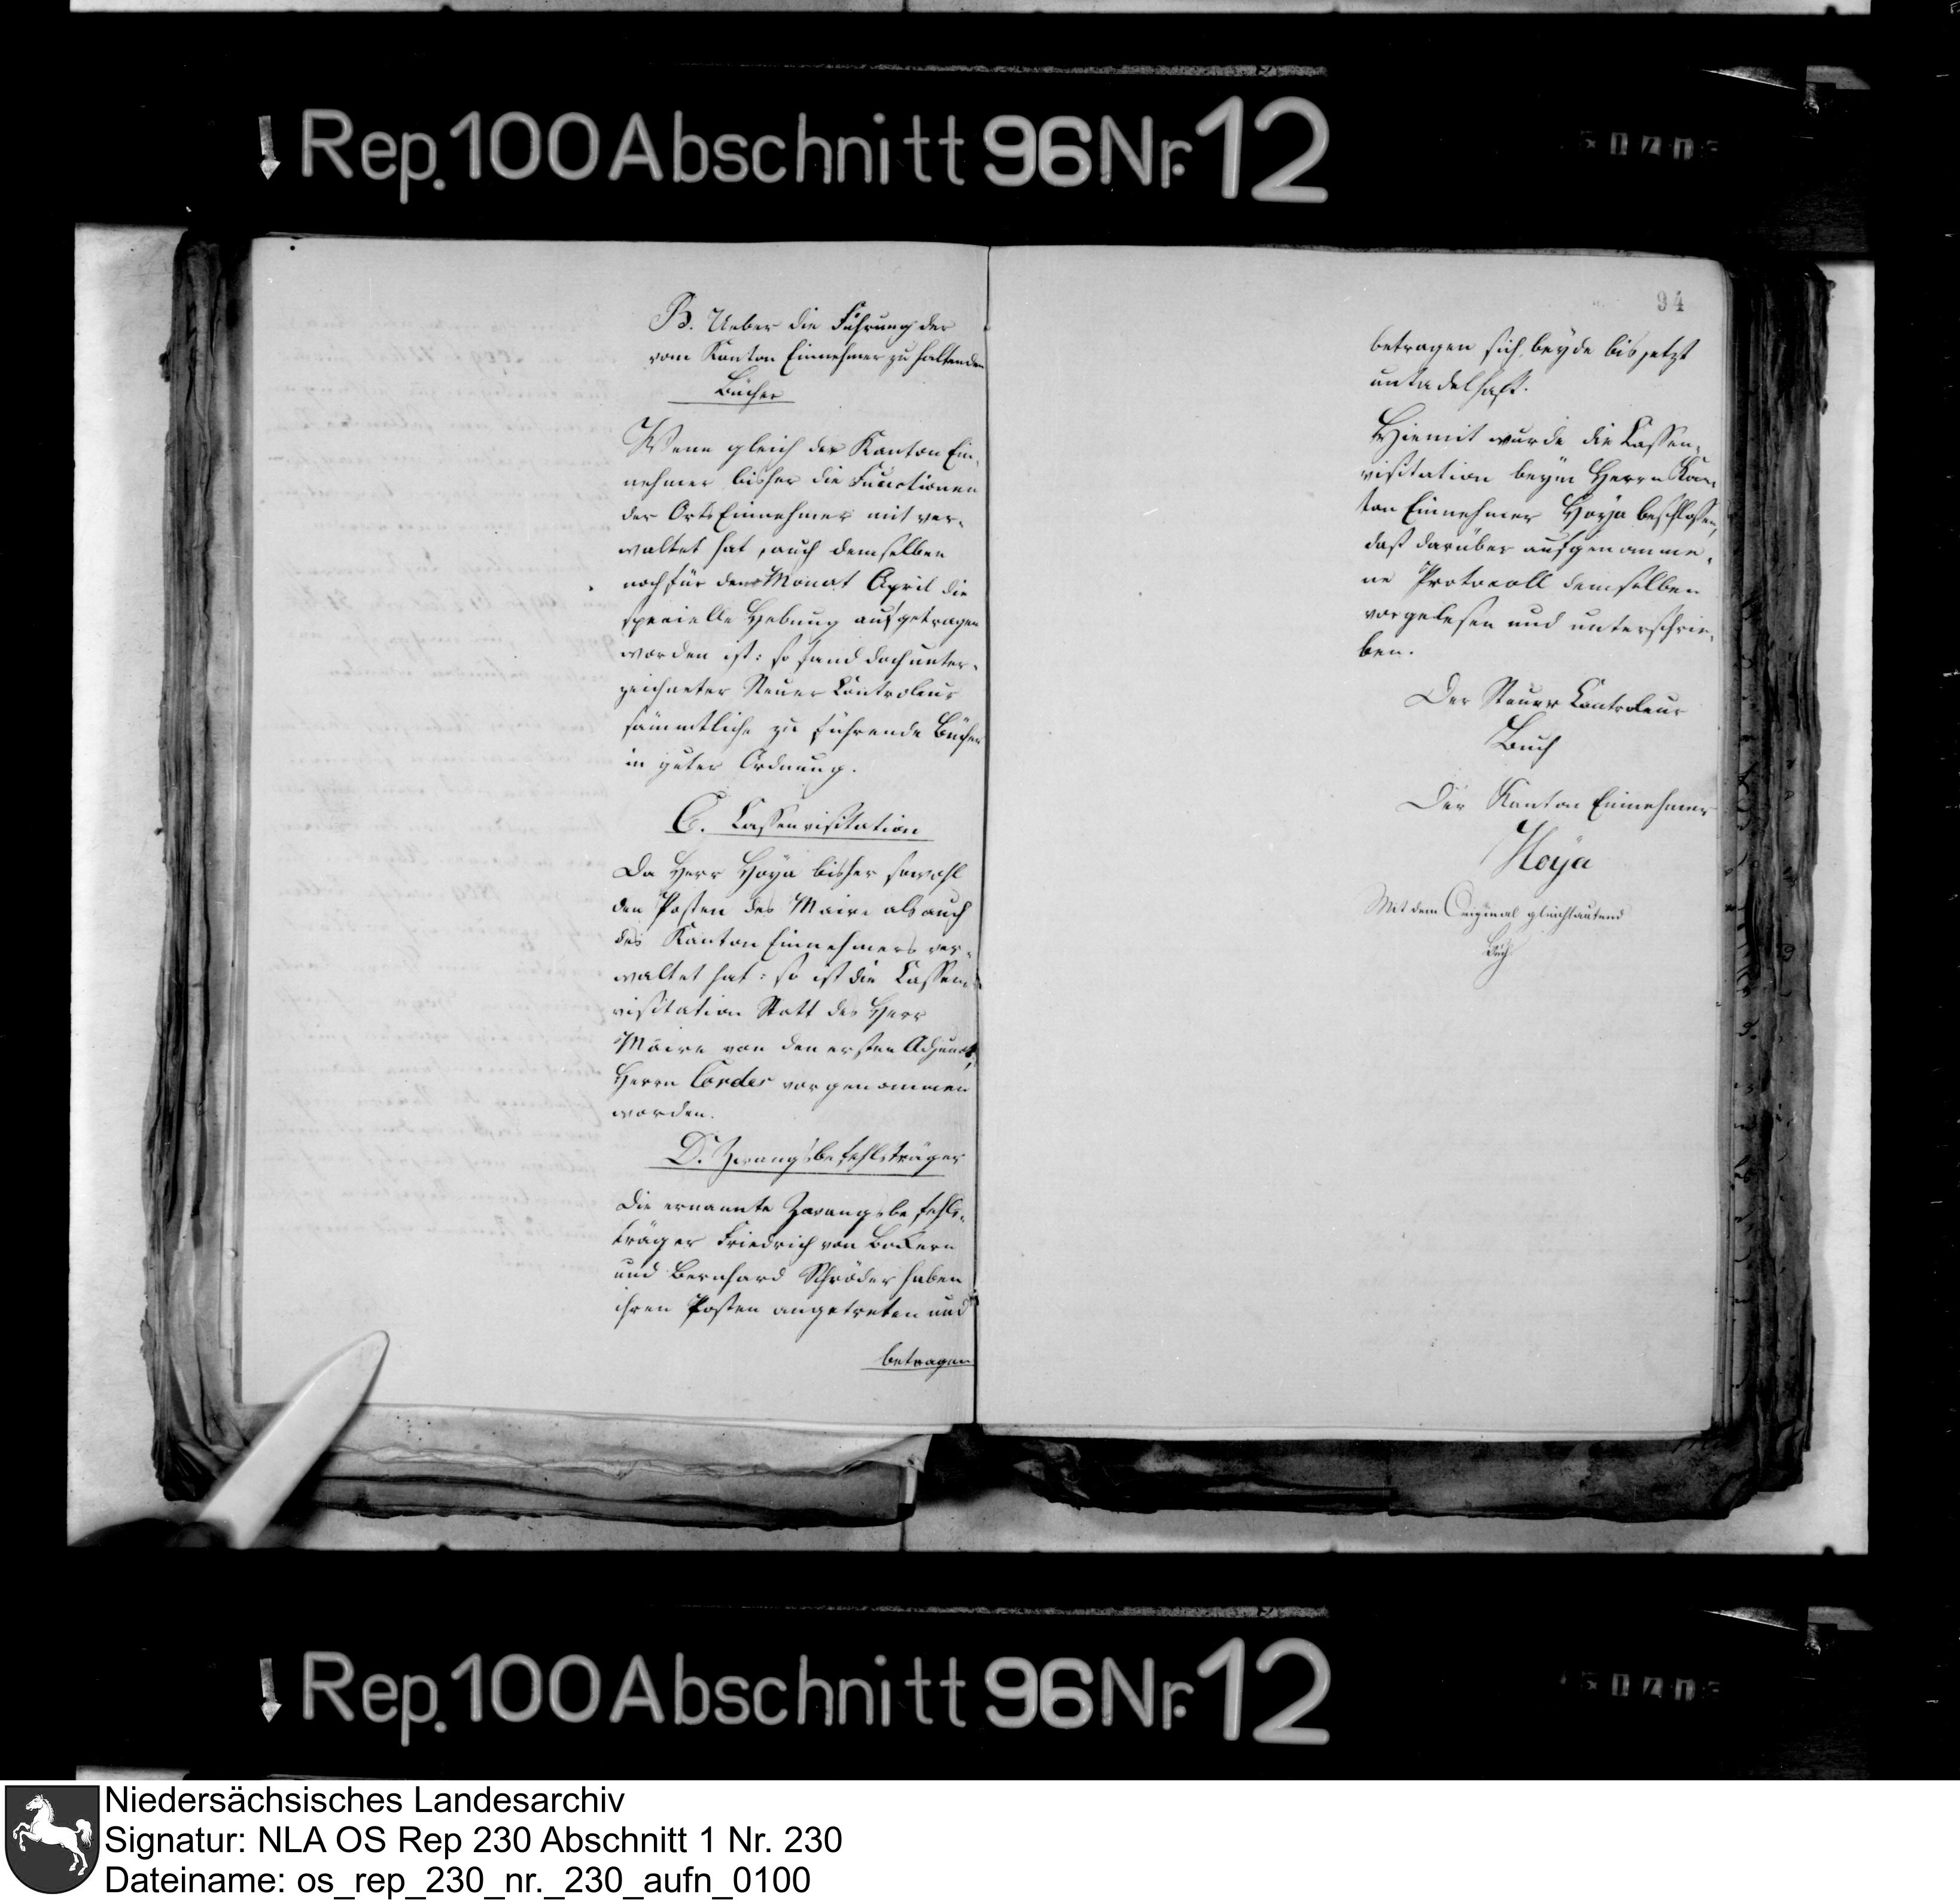 Rep. 100 Abschnitt 96 Nr. 12
B. Ueber die Führung der
vom Kanton Einnehmer zu haltenden
Bücher
Wenn gleich der Kanton Ein-
nehmer bisher die Functionen
der Orts Einnehmer mit ver-
waltet hat, auch demselben
noch für den Monat April die
specielle Hebung aufgetragen
worden ist: so fand doch unter-
zeichneter Steuer Controleur
sämmtliche zu führende Bücher
in guter Ordnung.
C. Cassenvisitation
Da Herr Hoya bisher sowohl
den Posten des Maire als auch
des Kanton Einnehmers ver-
waltet hat: so ist die Cassen-
visitation Statt des Herr
Maire von den ersten Adjunct,
Herrn Cordes vorgenommen
worden.
D. Zwangsbefehlsträger
Die ernannte Zwangsbefehls-
träger Friedrich von Bockern
und Bernhard Schröder haben
ihren Posten angetreten und
betragen
94
betragen sich beyde bis jetzt
untadelhaft.
Hiemit wurde die Cassen-
visitation beym Herrn Kan-
ton Einnehmer Hoya beschlossen,
daß darüber aufgenomme-
ne Protocoll demselben
vorgelesen und unterschrie-
ben.
Der Steuer Controleur
Buch
Der Kanton Einnehmer
Hoya
Mit dem Original gleichlautend
Buch
Rep. 100 Abschnitt 96 Nr. 12
Niedersächsisches Landesarchiv
Signatur: NLA OS Rep 230 Abschnitt 1 Nr. 230
Dateiname: os_rep_230_nr._230_aufn_0100